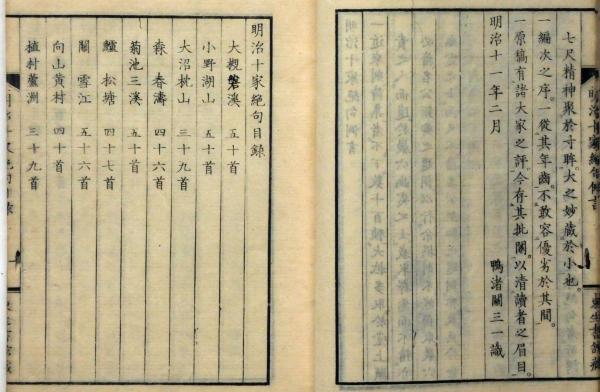 七尺精神聚於寸眸大之妙藏於小也
一編次之序一從其年齒不敢容優劣於其間
一原稿有諸大家之評今存其批圈以清讀者之眉目
明治十一年二月
鴨渚關三一識
明治十家絕句目錄
大槻磐溪 五十首
小野湖山 五十首
大沼枕山 三十九首
森 春濤 四十六首
菊池三溪 五十首
鱸 松塘 四十七首
關 雪江 五十六首
向山黃村 四十首
植村蘆洲 三十九首